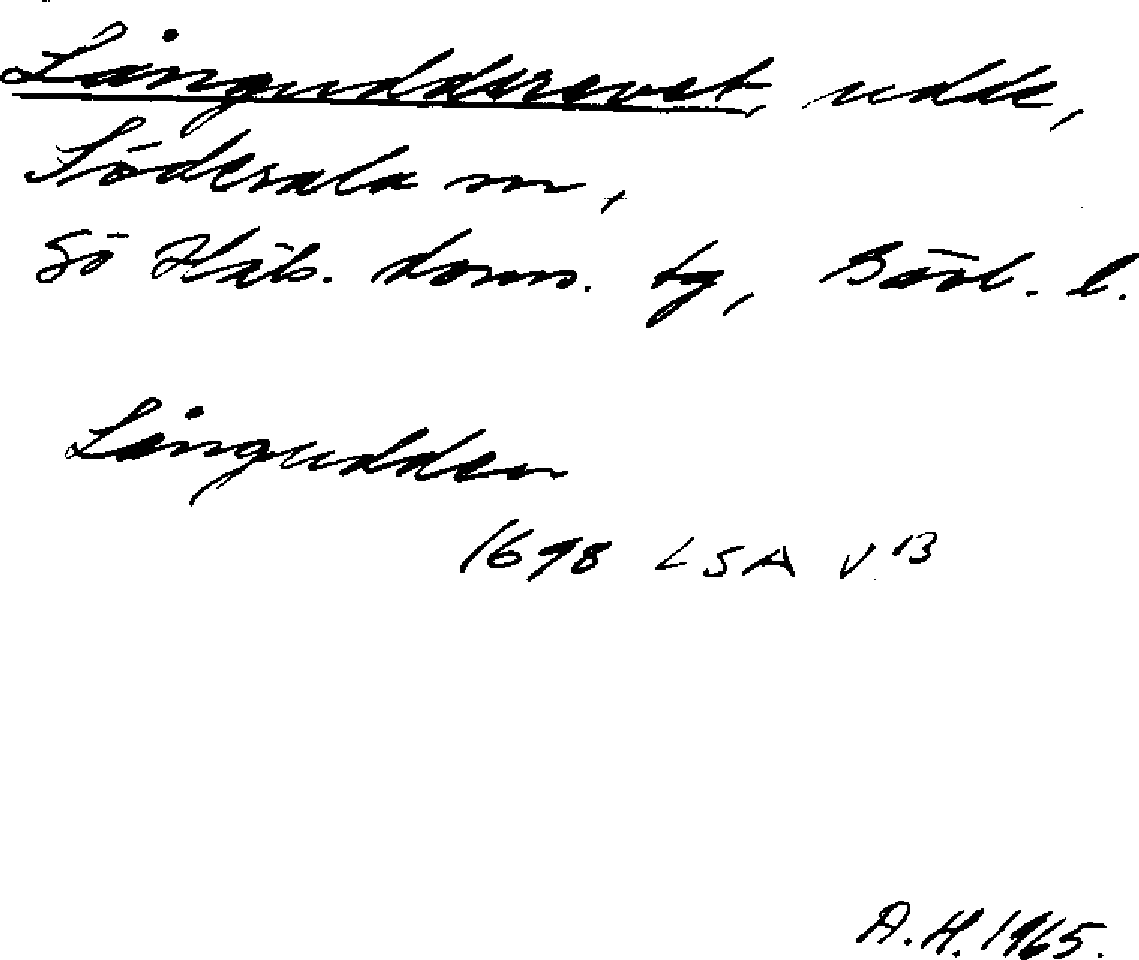 Långuddsrevet, udde,
Söderala sn,
Sö Häls. doms. tg, Gävl. l.
Långudden
1698 LSA V 13
A.H. 1965.